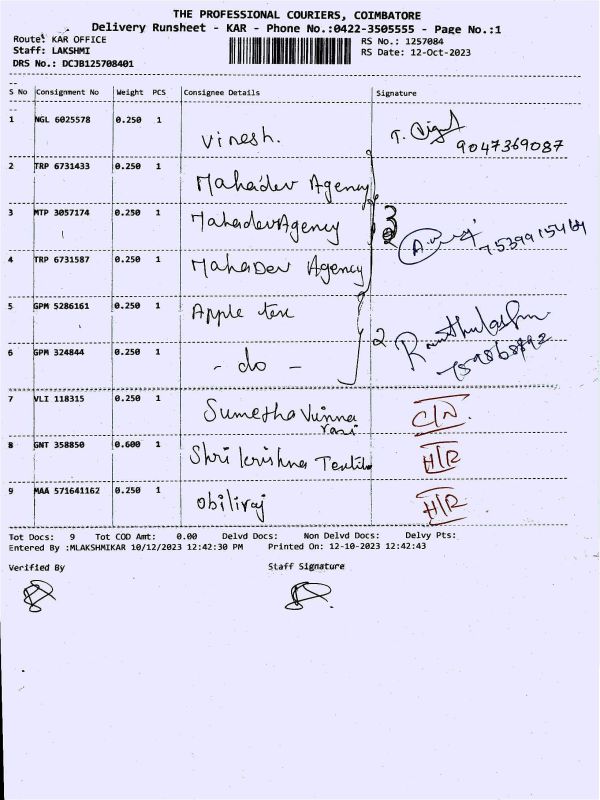 THE PROFESSIONAL COURIERS, COIMBATORE
Delivery Runsheet - KAR - Phone No.:0422-3505555 - Page No.:1
Route: KAR OFFICE RS No.: 1257084
Staff: LAKSHMI RS Date: 12-Oct-2023
DRS No.: DCJB125708401
S No Consignment No Weight PCS Consignee Details Signature
1 NGL 6025578 0.250 1 Vinesh. T.
9047369087
2 TRP 6731433 0.250 1 Mahadev Agency
3 MTP 3057174 0.250 1 Mahadev Agency 3
4 TRP 6731587 0.250 1 MahaDev Agency
5 GPM 5286161 0.250 1 Apple tex
6 GPM 324844 0.250 1 - do - 2
7 VLI 118315 0.250 1 Sumetha C/N.
8 GNT 358850 0.600 1 Shri krishna H/R
9 MAA 571641162 0.250 1 Obiliraj H/R
Tot Docs: 9 Tot COD Amt: 0.00 Delvd Docs: Non Delvd Docs: Delvy Pts:
Entered By :MLAKSHMIKAR 10/12/2023 12:42:30 PM Printed On: 12-10-2023 12:42:43
Verified By Staff Signature